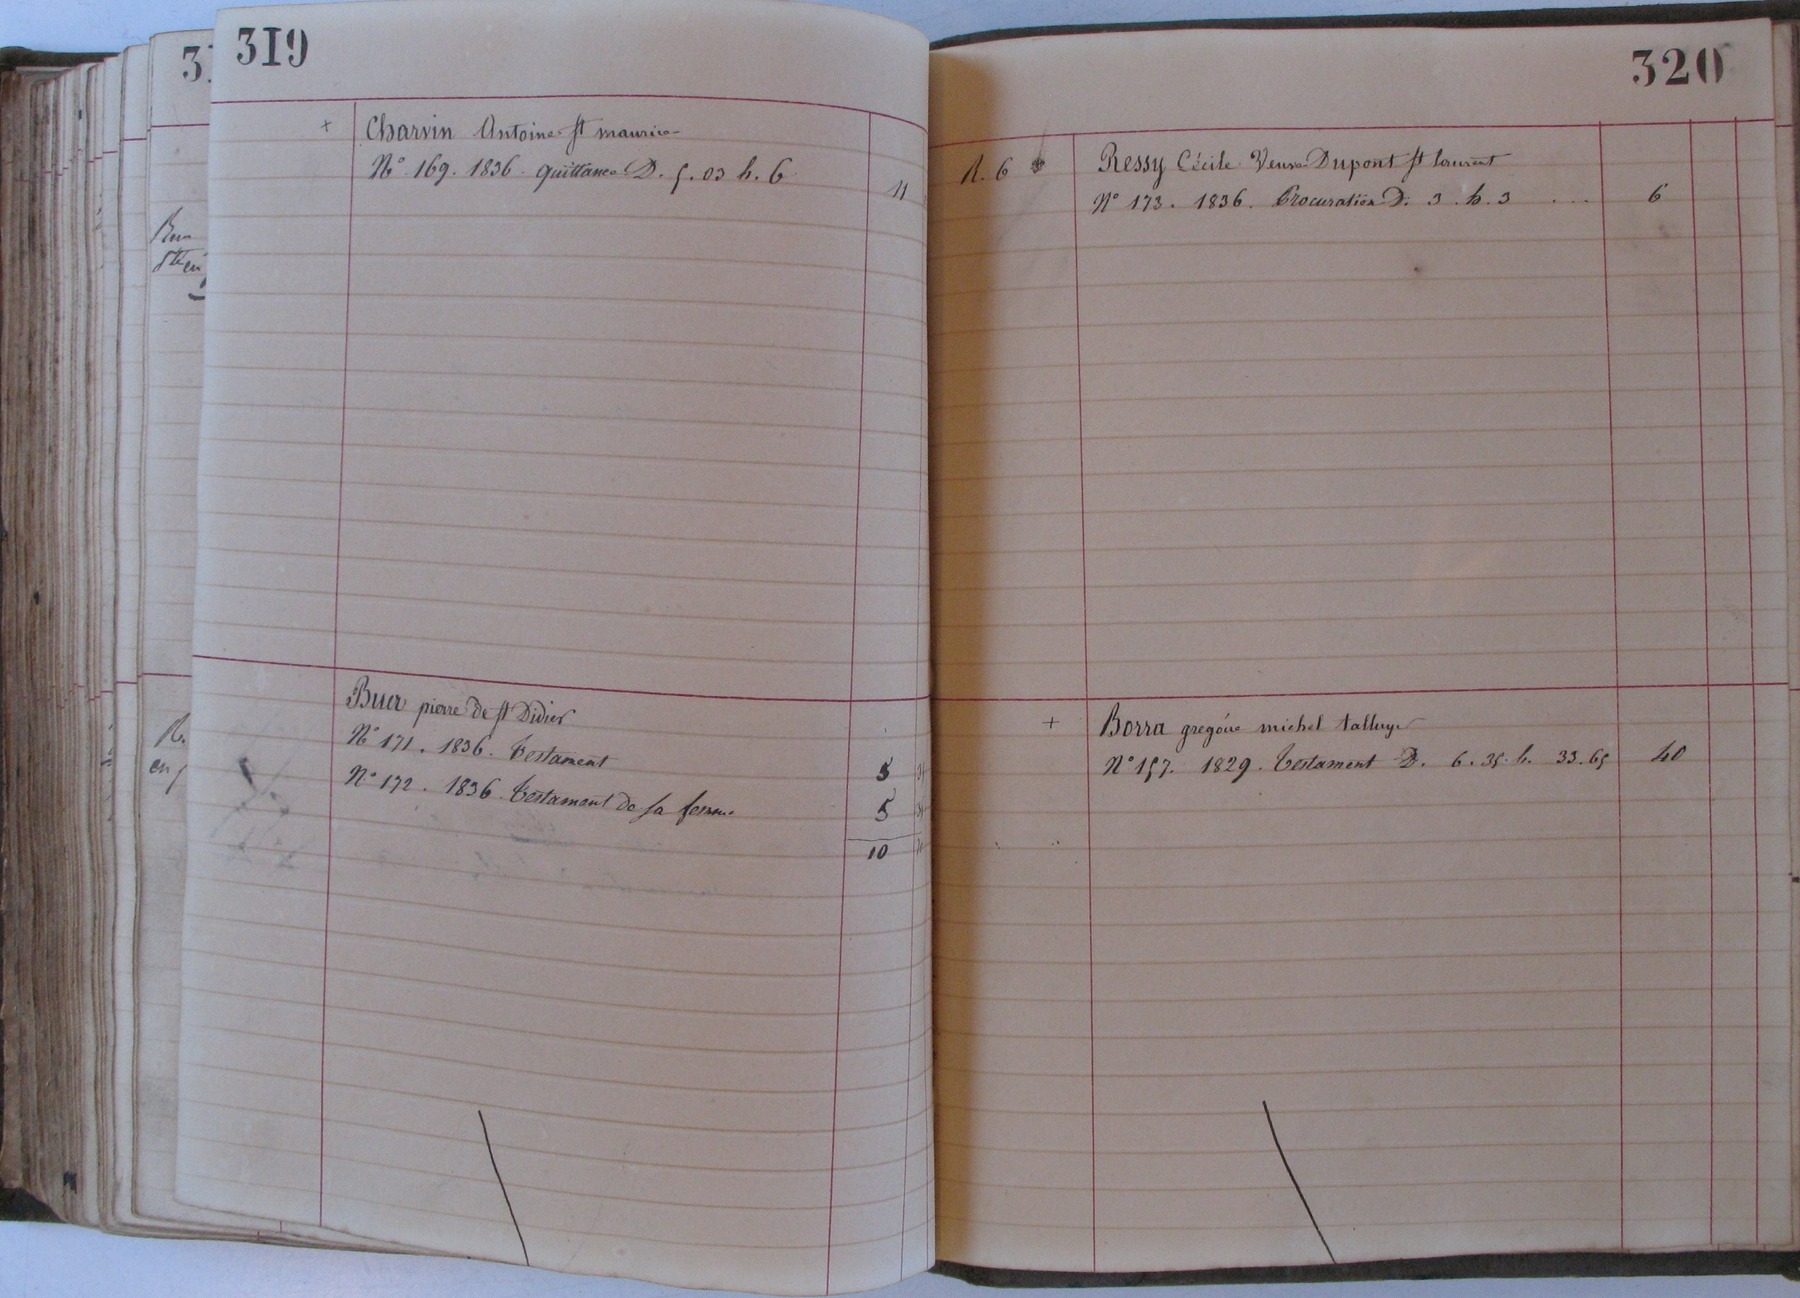 319
+ Charvin Antoine St maurice
N° 169. 1836. quittance D. 5.03 h. 6 11
Buer pierre de St Didier
N° 171. 1836. Testament 5
N° 172. 1836. Testament de sa femme 5
10
320
R. 6 Ressy Cécile Veuve Dupont St laurent
N° 173. 1836. Procuration D. 3. h. 3 ... 6
+ Borra gregoire michel talluye
N° 157. 1829. Testament D. 6.35. h. 33.65 40